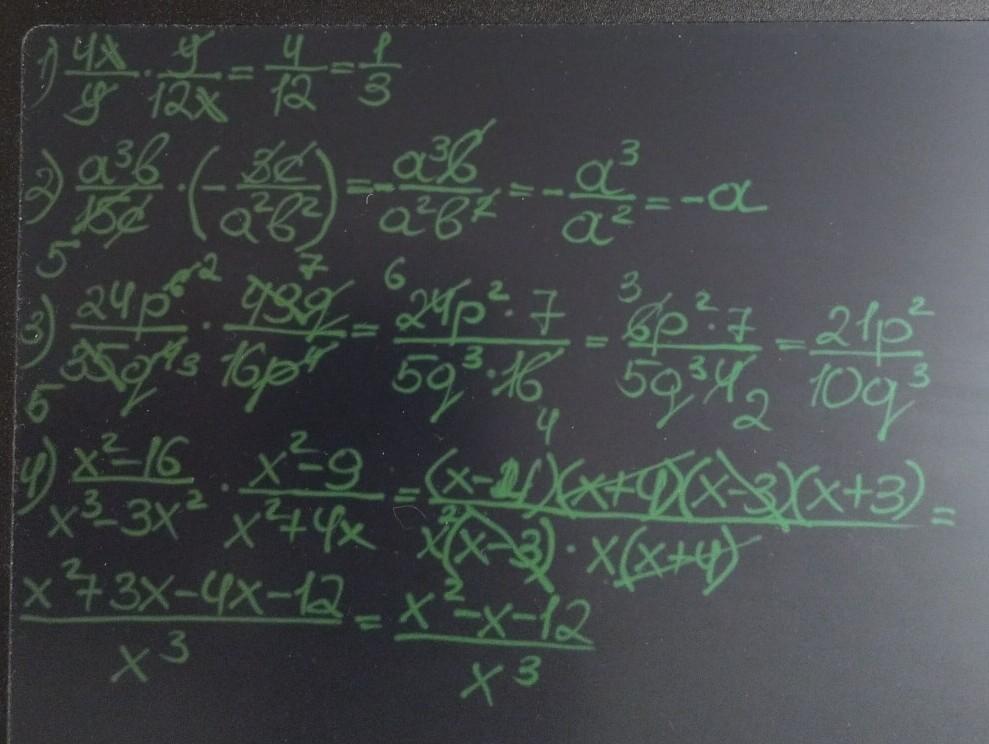 1) 4x/y · y/12x = 4/12 = 1/3
2) a³b/15c · (- 3c/a²b²) = - a³b/a²b² = - a³/a² = -a
5
3) 24p⁶ ²/35q⁴ ³ · 49q 7/16p⁴ = 6 24p² · 7/5q³ · 16 4 = 3 6p² · 7/5q³ 4 2 = 21p²/10q³
5
4) x²-16/x³-3x² · x²-9/x²+4x = (x-4)(x+4)(x-3)(x+3)/x²(x-3) · x(x+4) =
x²+3x-4x-12/x³ = x²-x-12/x³